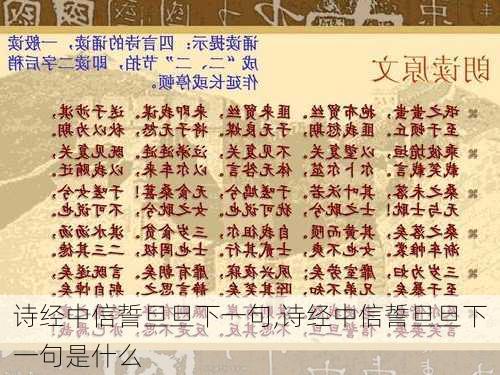 朗读原文
诵读提示：四言诗的诵读，一般读
成“二、二”拍节，即读二字后稍
作延长或停顿
氓之蚩蚩，抱布贸丝。匪来贸丝，来即我谋。送子涉淇，
至于顿丘。匪我愆期，子无良媒。将子无怒，秋以为期。
乘彼垝垣，以望复关。不见复关，泣涕涟涟。既见复关，
载笑载言。尔卜尔筮，体无咎言。以尔车来，以我贿迁。
桑之未落，其叶沃若。于嗟鸠兮，无食桑葚！于嗟女兮，
无与士耽！士之耽兮，犹可说也。女之耽兮，不可说也。
桑之落矣，其黄而陨。自我徂尔，三岁食贫。淇水汤汤，
渐车帷裳。女也不爽，士贰其行。士也罔极，二三其德。
三岁为妇，靡室劳矣；夙兴夜寐，靡有朝矣。
诗经中信誓旦旦下一句,诗经中信誓旦旦下
一句是什么